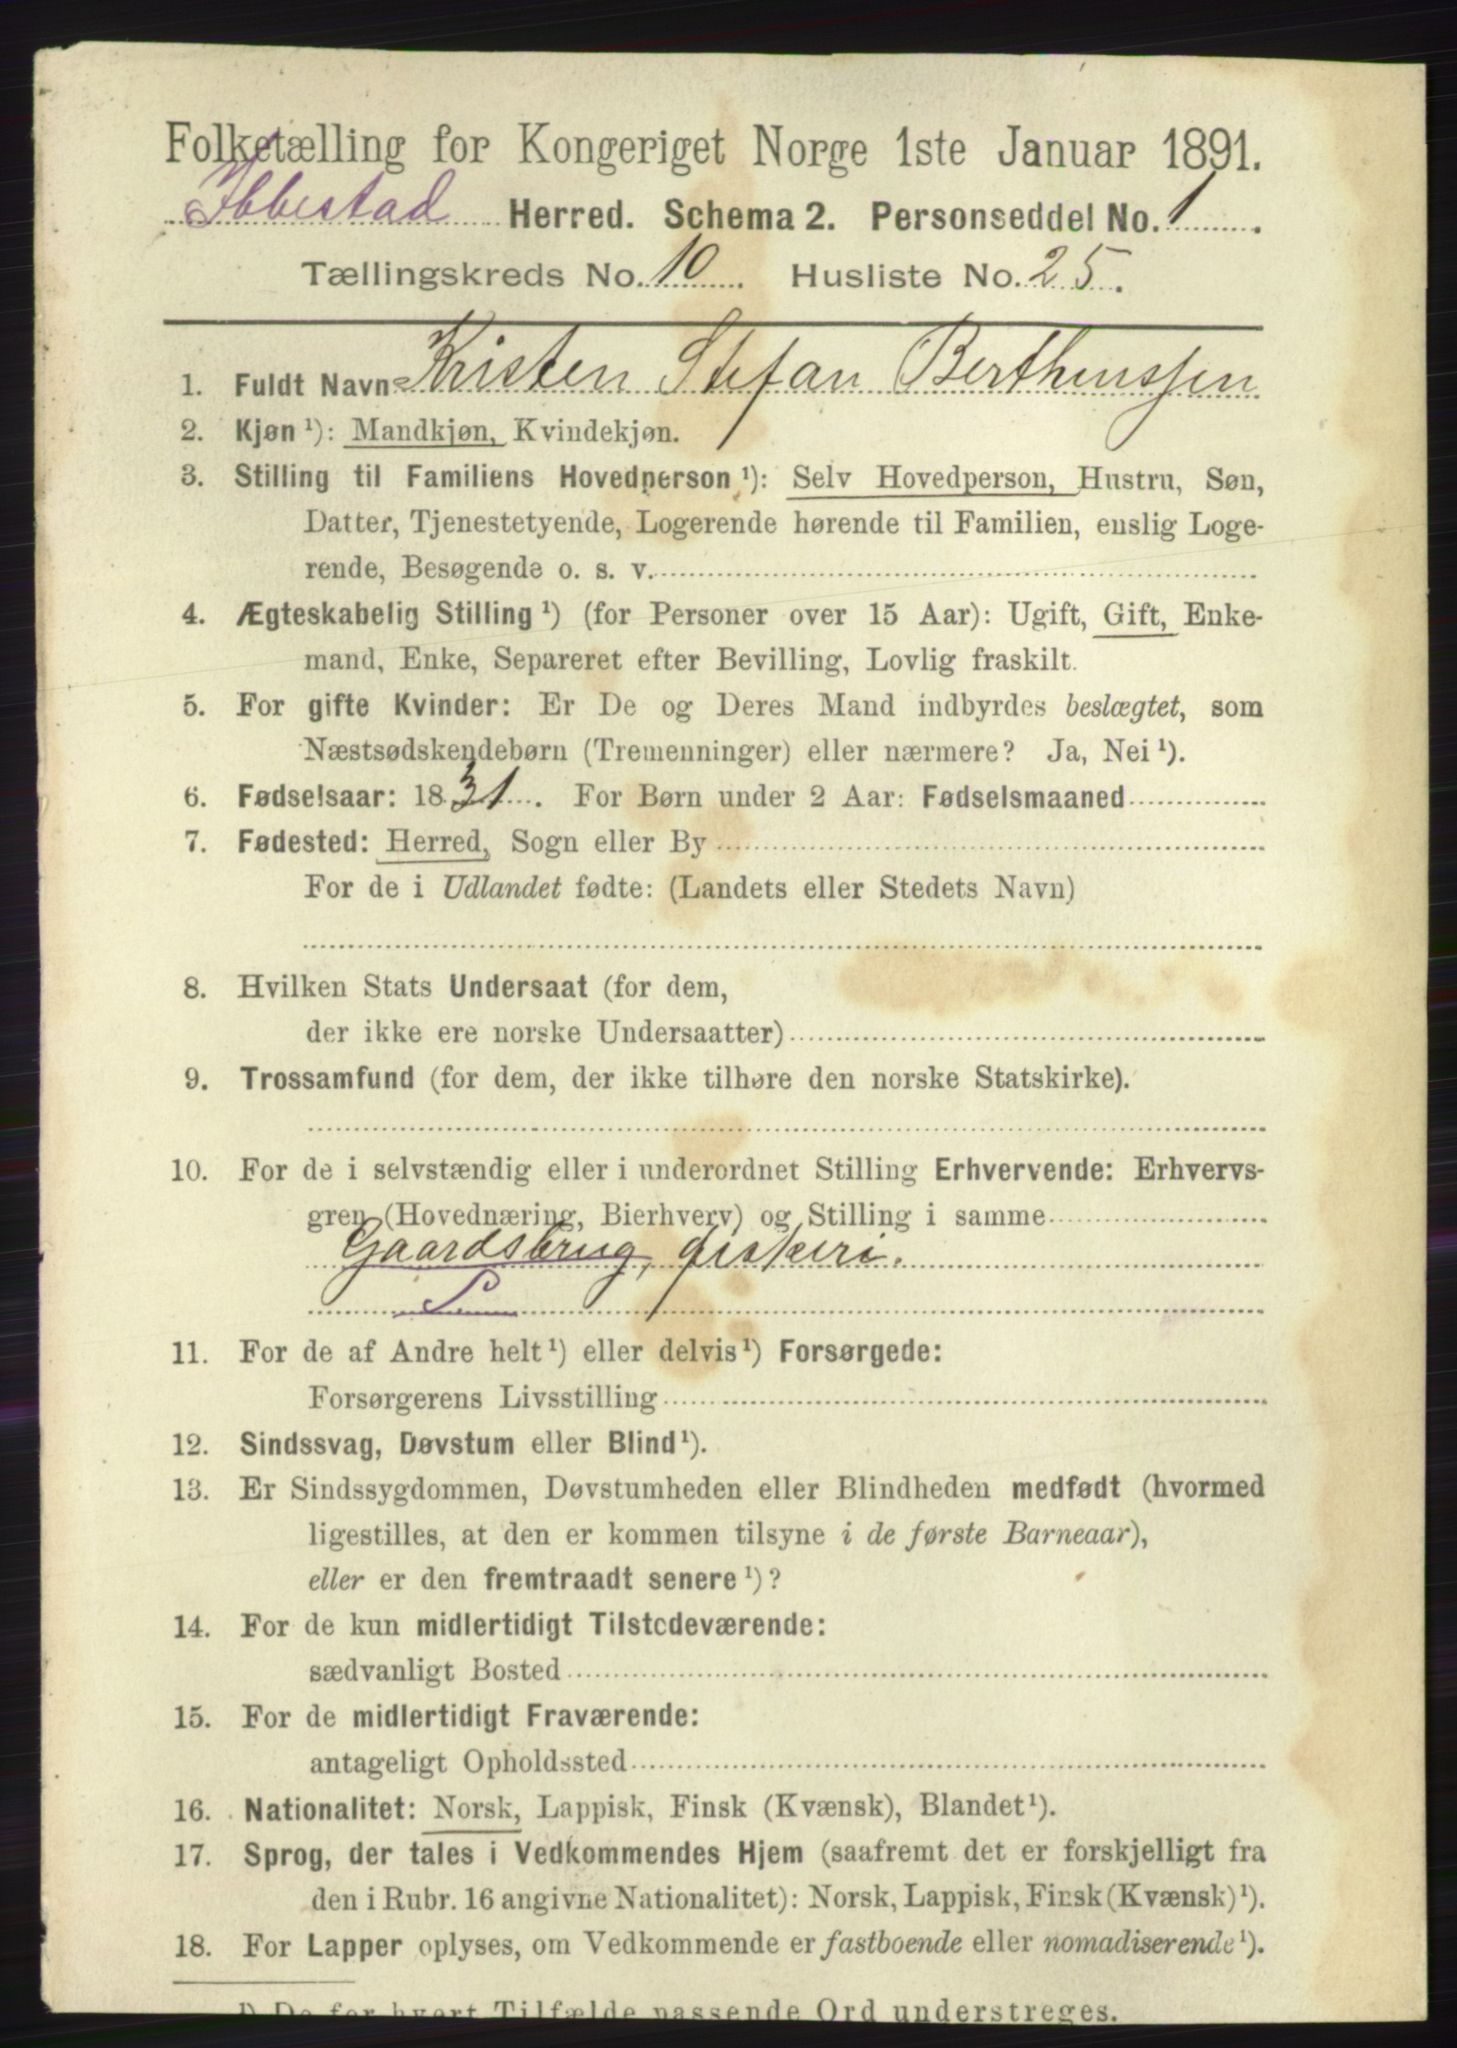 Folketælling for Kongeriget Norge 1ste Januar 1891.
Ibbestad Herred. Schema 2. Personseddel No. 1.
Tællingskreds No. 10. Husliste No. 25.
1. Fuldt Navn Kristen Stefan Berthenssen
2. Kjøn ¹): Mandkjøn, Kvindekjøn.
3. Stilling til Familiens Hovedperson ¹): Selv Hovedperson, Hustru, Søn,
Datter, Tjenestetyende, Logerende hørende til Familien, enslig Loge-
rende, Besøgende o. s. v.
4. Ægteskabelig Stilling ¹) (for Personer over 15 Aar): Ugift, Gift, Enke-
mand, Enke, Separeret efter Bevilling, Lovlig fraskilt.
5. For gifte Kvinder: Er De og Deres Mand indbyrdes beslægtet, som
Næstsødskendebørn (Tremenninger) eller nærmere? Ja, Nei ¹).
6. Fødselsaar: 1831. For Børn under 2 Aar: Fødselsmaaned
7. Fødested: Herred, Sogn eller By
For de i Udlandet fødte: (Landets eller Stedets Navn)
8. Hvilken Stats Undersaat (for dem,
der ikke ere norske Undersaatter)
9. Trossamfund (for dem, der ikke tilhøre den norske Statskirke).
10. For de i selvstændig eller i underordnet Stilling Erhvervende: Erhvervs-
gren (Hovednæring, Bierhverv) og Stilling i samme
Gaardsbrug, fiskeri.
S
11. For de af Andre helt ¹) eller delvis ¹) Forsørgede:
Forsørgerens Livsstilling
12. Sindssvag, Døvstum eller Blind ¹).
13. Er Sindssygdommen, Døvstumheden eller Blindheden medfødt (hvormed
ligestilles, at den er kommen tilsyne i de første Barneaar),
eller er den fremtraadt senere ¹)?
14. For de kun midlertidigt Tilstedeværende:
sædvanligt Bosted
15. For de midlertidigt Fraværende:
antageligt Opholdssted
16. Nationalitet: Norsk, Lappisk, Finsk (Kvænsk), Blandet ¹).
17. Sprog, der tales i Vedkommendes Hjem (saafremt det er forskjelligt fra
den i Rubr. 16 angivne Nationalitet): Norsk, Lappisk, Finsk (Kvænsk) ¹).
18. For Lapper oplyses, om Vedkommende er fastboende eller nomadiserende ¹).
¹) De for hvert Tilfælde passende Ord understreges.